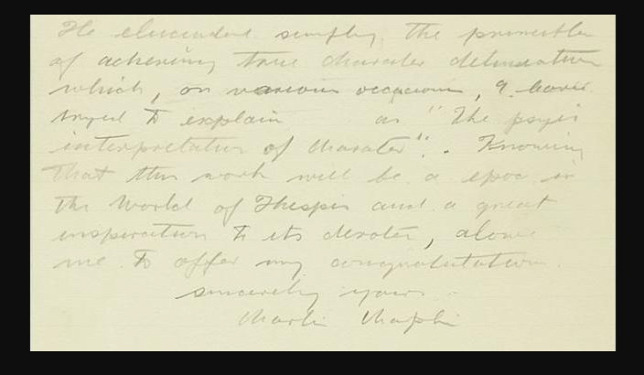 He elucidates simply, the principles
of achieving true character delineation
which, on various occasions, I have
tryed to explain as "The psyci
interpretation of charater". Knowing
that this work will be a epoc in
the world of Thespis and a great
inspiration to its devotee, alow
me to offer my congratulation.
sincerely yours
Charlie Chaplin